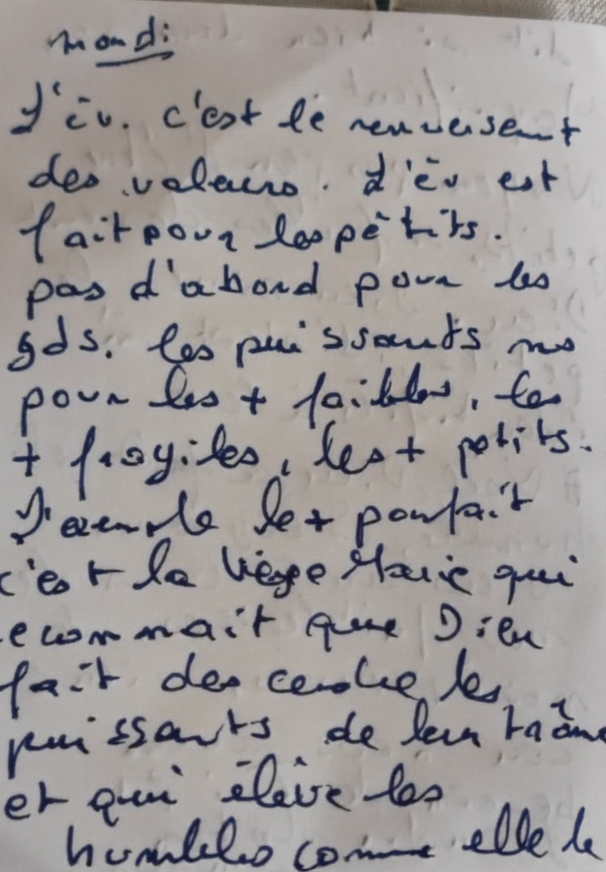 mardi
L'èv. c'est le renversement
des valeurs. L'èv est
fait pour les petits.
pas d'abord pour les
gds. les puissants ms
pour les + faibles, les
+ fragiles, les + petits.
L'exemple le + parfait
c'est la Vierge Marie qui
reconnait que Dieu
fait descendre les
puissants de leur trône
et qui élève les
humbles comme elle le